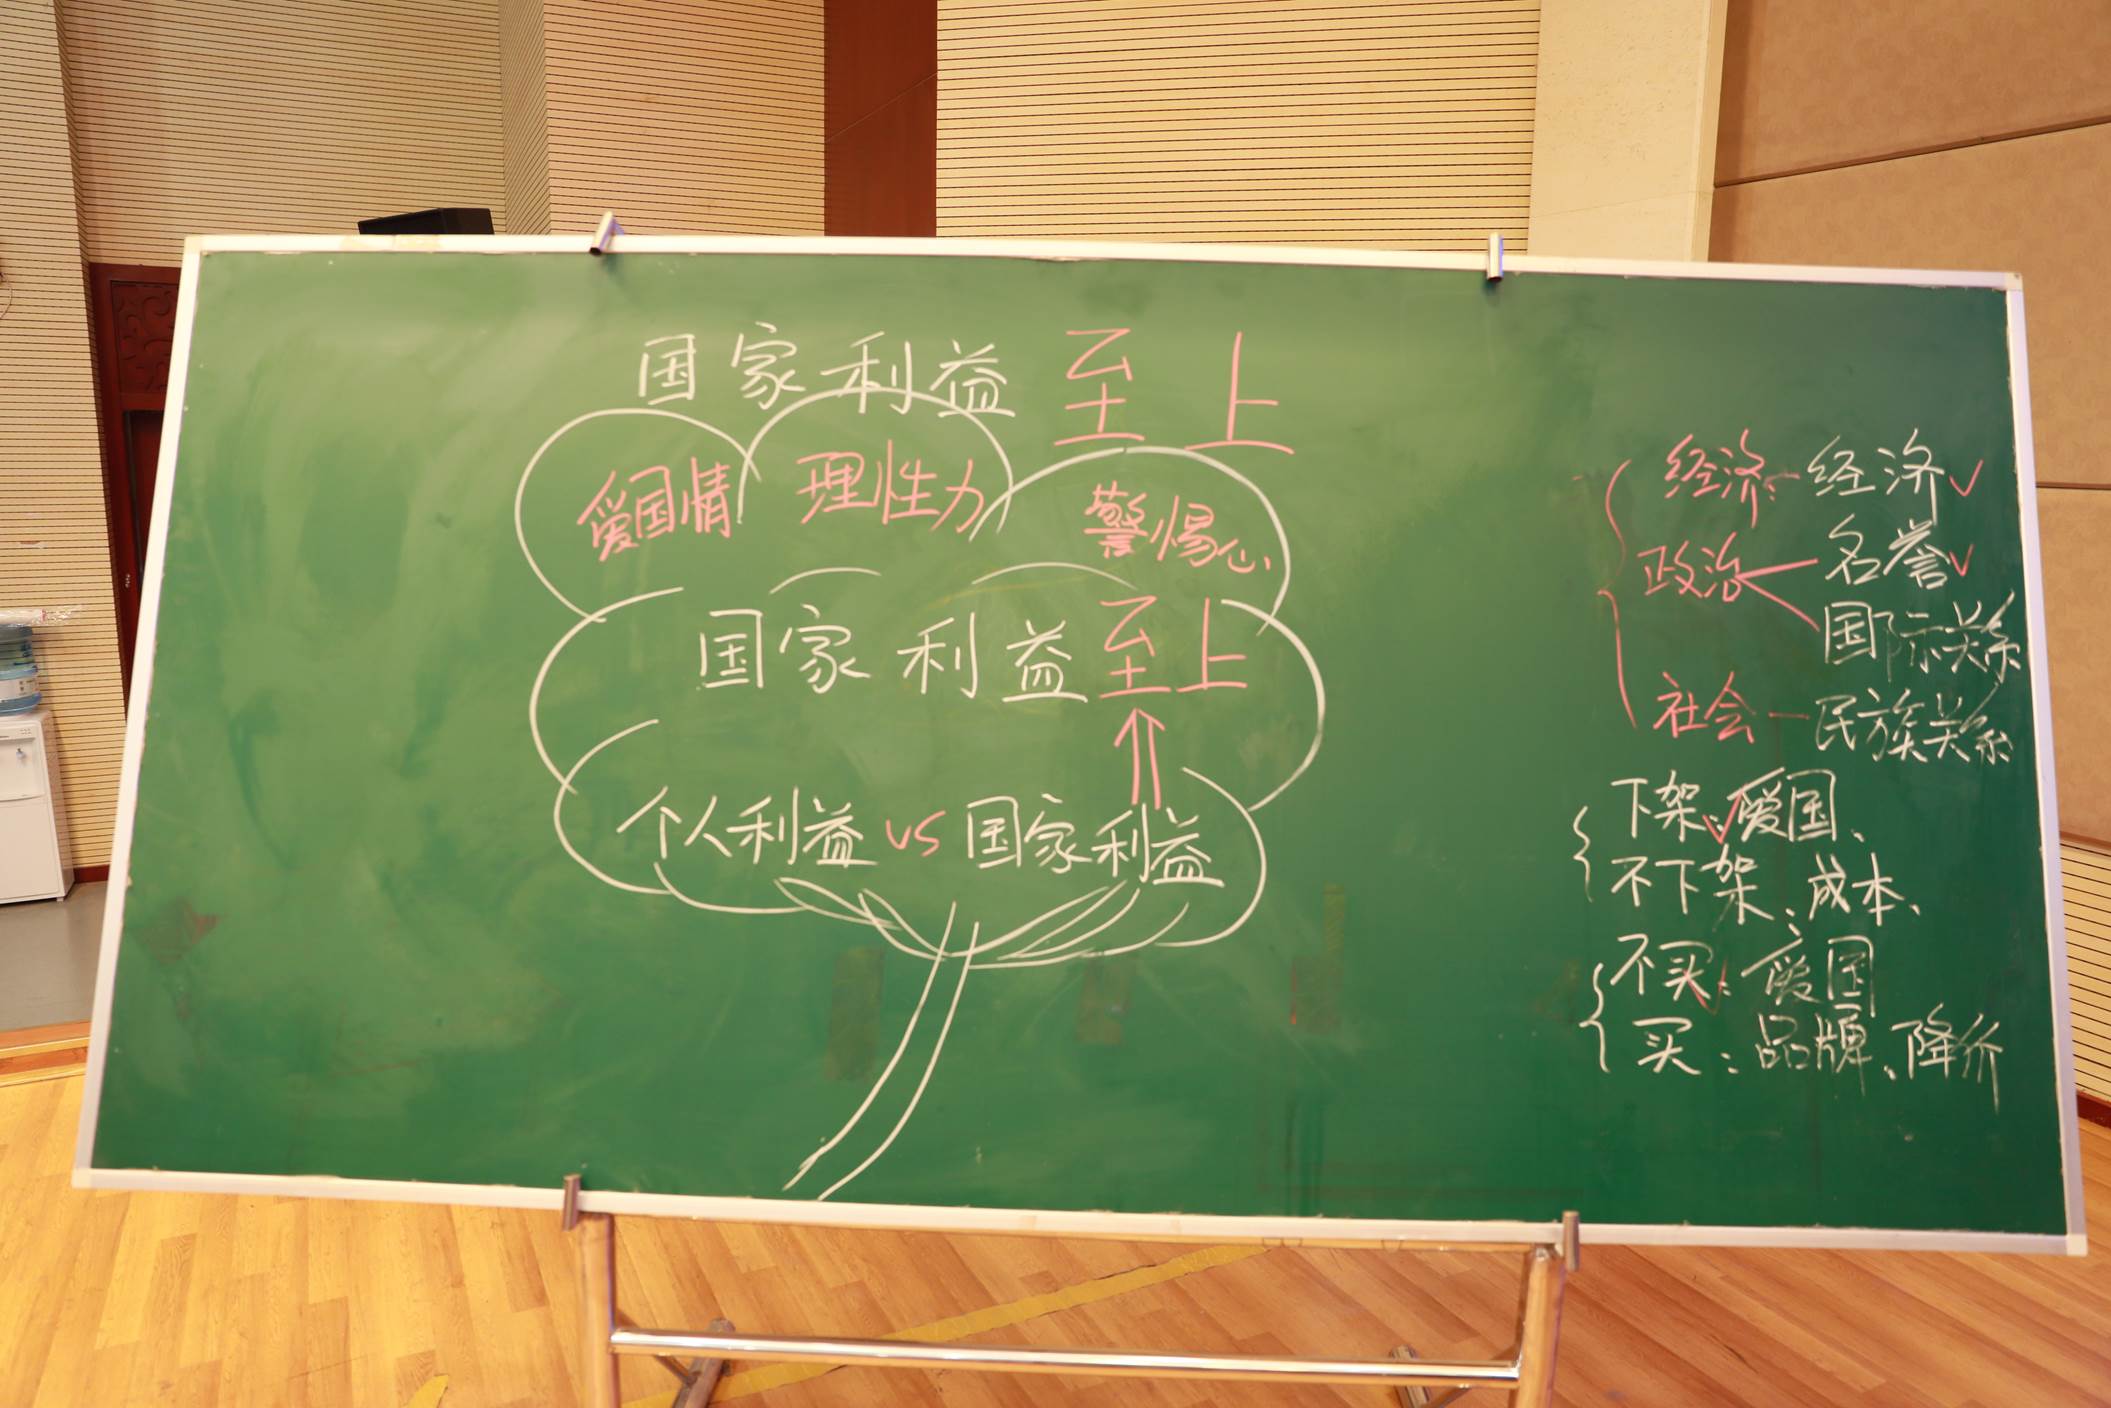 国家利益至上
爱国情 理性力 警惕心
国家利益至上
个人利益 VS 国家利益
经济 — 经济 ✓
政治 名誉 ✓
国际关系
社会 — 民族关系
下架: 爱国、
不下架: 成本、
不买: 爱国
买: 品牌、降价